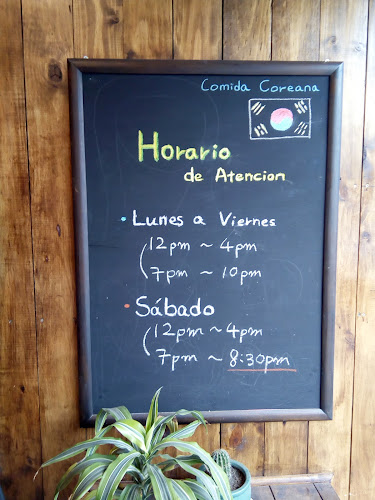 Comida Coreana
Horario
de Atencion
• Lunes a Viernes
12pm ~ 4pm
7pm ~ 10pm
• Sábado
12pm ~ 4pm
7pm ~ 8:30pm